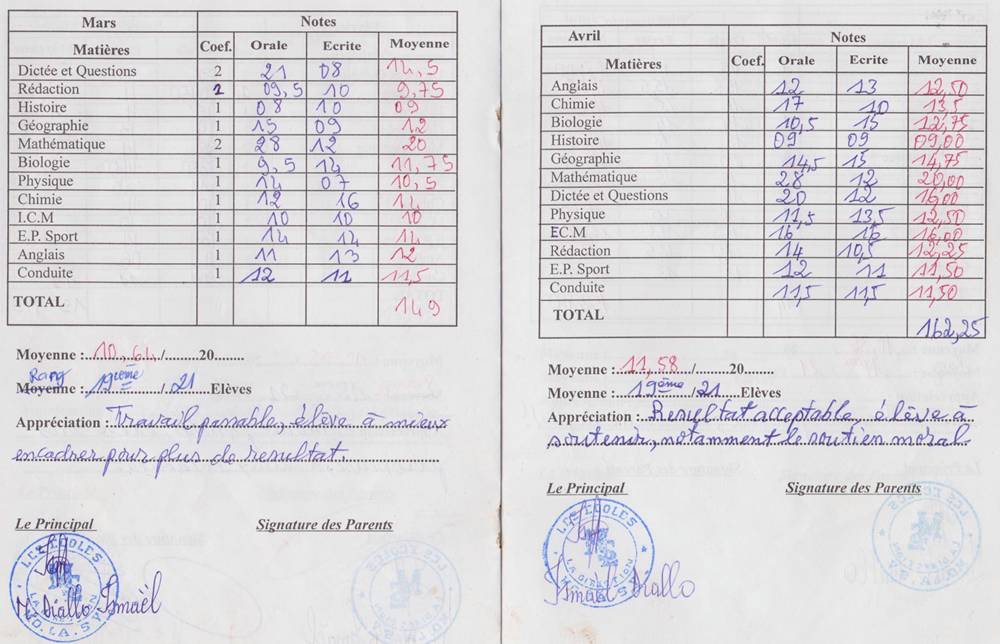 Mars Notes
Matières Coef. Orale Ecrite Moyenne
Dictée et Questions 2 21 08 14,5
Rédaction 2 09,5 10 9,75
Histoire 1 08 10 09
Géographie 1 15 09 12
Mathématique 2 28 12 20
Biologie 1 9,5 14 11,75
Physique 1 14 07 10,5
Chimie 1 12 16 14
I.C.M 1 10 10 10
E.P. Sport 1 14 14 14
Anglais 1 11 13 12
Conduite 1 12 11 11,5
TOTAL 149
Moyenne :..10,64./.........20........
Rang
Moyenne :.19ème./.21.Elèves
Appréciation : Travail passable, élève à mieux
encadrer pour plus de resultat.
Le Principal Signature des Parents
LES ECOLES
M Diallo Ismaël
Avril Notes
Matières Coef. Orale Ecrite Moyenne
Anglais 12 13 12,50
Chimie 17 10 13,5
Biologie 10,5 15 12,75
Histoire 09 09 09,00
Géographie 14,5 15 14,75
Mathématique 28 12 20,00
Dictée et Questions 20 12 16,00
Physique 11,5 13,5 12,50
ECM 16 16 16,00
Rédaction 14 10,5 12,25
E.P. Sport 12 11 11,50
Conduite 11,5 11,5 11,50
TOTAL 162,25
Moyenne :..11,58./.........20........
Moyenne :.19ème./.21.Elèves
Appréciation : Resultat acceptable, élève à
soutenir, notamment le soutien moral.
Le Principal Signature des Parents
LES ECOLES
LA DIRECTION
Ismaël Diallo